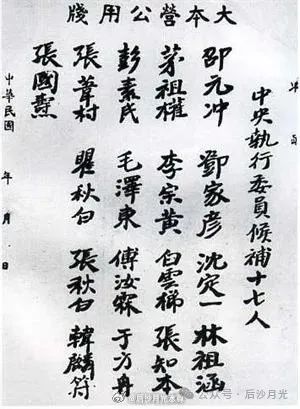 大本營公用牋
中央執行委員候補十七人
邵元冲 鄧家彥 沈定一 林祖涵
茅祖權 李宗黃 白雲梯 張知本
彭素民 毛澤東 傅汝霖 于方舟
張葦村 瞿秋白 張秋白 韓麟符
張國燾
中華民國 年 月 日
公众号·后沙月光
@后沙月光本尊